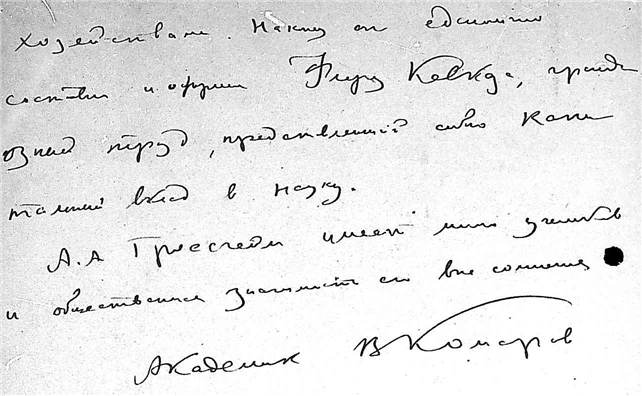 хозяйствам. Наконец он единолично
составил и офрмил Флору Кавказа, гранди
озный труд, представляющий собою капи
тальный вклад в науку.
А.А Гроссгейм имеет много учеников
и общественная значимость его вне сомнения
Академик В Комаров